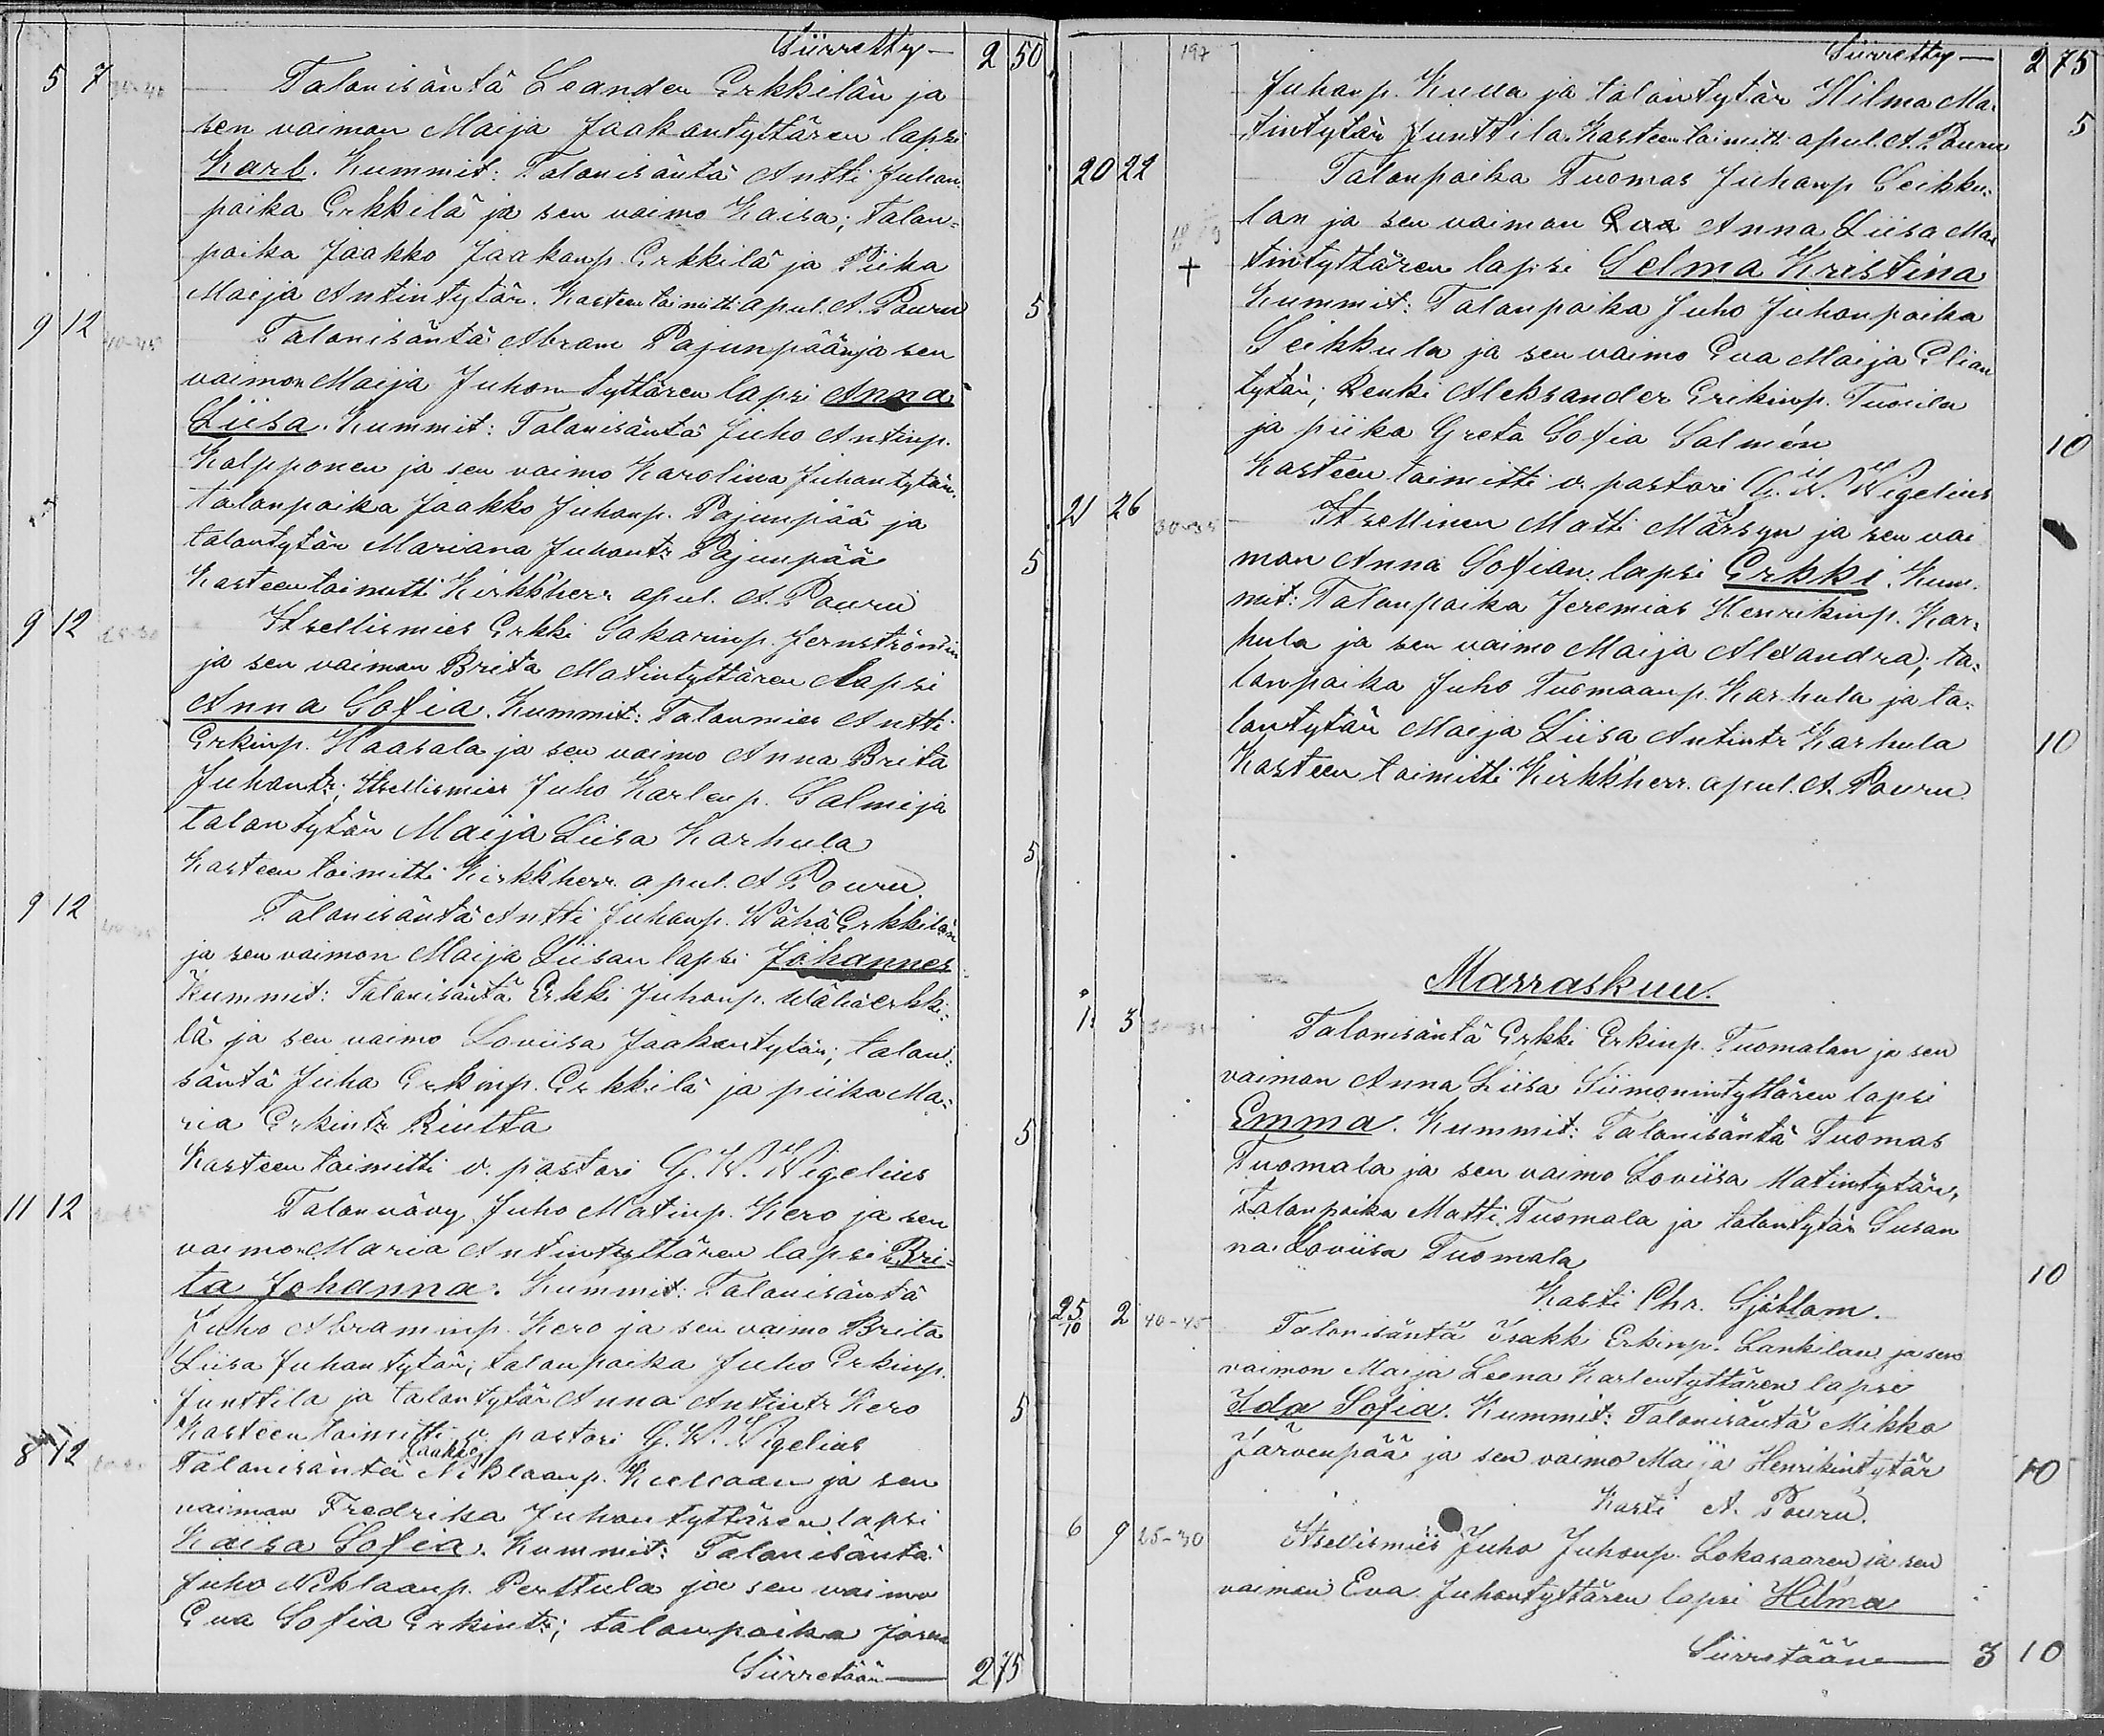 Siirretty — 2 50
5 7 Talonisäntä Leander Erkkilän ja
sen vaimon Maija Jaakontyttären lapsi
Karl. Kummit: Talonisäntä Antti Juhan
poika Erkkilä ja sen vaimo Kaisa; talon-
poika Jaakko Jaakonp. Erkkilä ja Piika
Maija Antintytär. Kasteen toimitti apul. A. Pouru 5
9 12 40-45 Talonisäntä Abram Pajunpään ja sen
vaimon Maija Juhontyttären lapsi Anna
Liisa. Kummit: Talonisäntä Juho Antinp.
Kalpponen ja sen vaimo Karolina Juhontytär,
talonpoika Jaakko Juhonp. Pajunpää ja
talontytär Mariana Juhontr Pajunpää 5
Kasteen toimitti Kirkkherr apul. A. Pouru
9 12 25-30 Itsellismies Erkki Sakarinp. Jernströmin
ja sen vaimon Brita Matintyttären lapsi
Anna Sofia. Kummit: Talonmies Antti
Erkinp. Haasala ja sen vaimo Anna Brita
Juhontr; Itsellismies Juho Karlenp. Salmi ja
talontytär Maija Liisa Karhula 5
Kasteen toimitti Kirkkherr. apul. A Pouru.
9 12 Talonisäntä Antti Juhonp. Wähä Erkkilän
ja sen vaimon Maija Liisan lapsi Johannes
Kummit: Talonisäntä Erkki Juhonp. Wähäerkki-
lä ja sen vaimo Loviisa Jaakontytär; talon-
säntä Juha Erkinp. Erkkilä ja piika Ma-
ria Erkintr Rintta 5
Kasteen toimitti v. pastori G. W. Wigelius
11 12 Talonvävy Juho Matinp. Kero ja sen
vaimon Maria Antintyttären lapsi Bri-
ta Johanna. Kummit: Talonisäntä
Juho Abraminp. Kero ja sen vaimo Brita
Liisa Juhontytär; talonpoika Juho Erkinp.
Junttila ja talontytär Anna Antintr Kero 5
Kasteen toimitti v. pastori G. W. Wigelius
8 12 Talonisäntä Jaakko Niklaanp. Kullaan ja sen
vaimon Fredrika Juhontyttären lapsi
Kaisa Sofia. Kummit: Talonisäntä
Juho Niklaanp. Perttula ja sen vaimo
Eva Sofia Erkintr; talonpoika
Siirretään — 2 75
197 Siirretty — 2 75
Juhanp. Kulla ja talontytär Hilma Ma-
tintytär Junttila. Kasteen toimitti apul. A. Pouru 5
20 22 Talonpoika Tuomas Juhanp Seikku-
lan ja sen vaimon Anna Liisa Ma-
+ tintyttären lapsi Selma Kristina
Kummit: Talonpoika Juho Juhonpoika
Seikkula ja sen vaimo Eva Maija Elian
tytär; Renki Aleksander Erikinp. Tuorila
ja piika Greta Sofia Salmén 10
Kasteen toimitti v. pastori G. W. Wigelius
21 26 30-35 Itsellinen Matti Märsyn ja sen vai
mon Anna Sofian lapsi Erkki. Kum-
mit: Talonpoika Jeremias Henrikinp. Kar-
hula ja sen vaimo Maija Alexandra; ta-
lonpoika Juho Tuomaanp. Karhula ja ta-
lontytär Maija Liisa Antintr Karhula 10
Kasteen toimitti Kirkkherr. apul. A. Pouru
Marraskuu.
1 3 Talonisäntä Erkki Erkinp. Tuomalan ja sen
vaimon Anna Liisa Siimonintyttären lapsi
Emma. Kummit: Talonisäntä Tuomas
Tuomala ja sen vaimo Loviisa Matintytär,
Talonpoika Matti Tuomala ja talontytär Susan
na Loviisa Tuomala 10
Kasti Chr. Sjöblom.
25/10 2 40-45 Talonisäntä Isakk Erkinp. Lankilan ja sen
vaimon Maija Leena Karlentyttären lapsi
Ida Sofia. Kummit: Talonisäntä Mikko
Järvenpää ja sen vaimo Maija Henrikintytär 10
Kasti A. Pouru.
6 9 25-30 Itsellismies Juho Juhonp. Lokasaaren ja sen
vaimon Eva Juhontyttären lapsi Hilma
Siirretään — 3 10